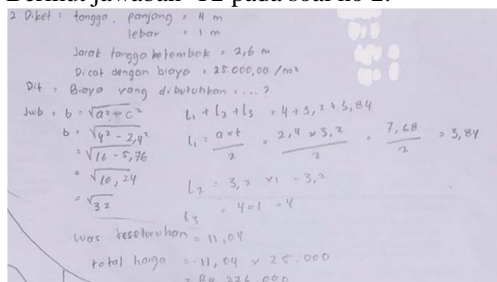 2 Diket : tangga. panjang = 4 m
lebar = 1 m
Jarak tangga ke tembok = 2,6 m
Dicat dengan biaya : 25.000,00 /m²
Dit : Biaya yang dibutuhkan : ...?
Jwb : b = √a² - c²
b = √4² - 2,4²
= √16 - 5,76
= √10,24
= √32
L₁ + L₂ + L₃ = 4 + 3,2 + 3,84
L₁ = a x t / 2 = 2,4 x 3,2 / 2 = 7,68 / 2 = 3,84
L₂ = 3,2 x 1 = 3,2
L₃ = 4 x 1 = 4
Luas keseluruhan = 11,04
total harga = 11,04 x 25.000.
= Rp 276.000